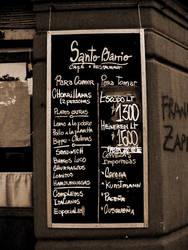 Santo Barrio
Café • Restaurant
Para Comer
Para Tomar
Chorrillanas
(2 personas)
Escudo Lt
$1300
Platos extras
Lomo a lo pobre
Heineken Lt
Pollo a la plancha
$1600
Bife - Chilenas
Sandwich
Cervezas
Barros Luco
Importadas
Churrascos
Lomito
• Corona
Hamburguesas
• Kunstmann
Completos
Italianos
• Paceña
Especiales!!
• Cusqueña